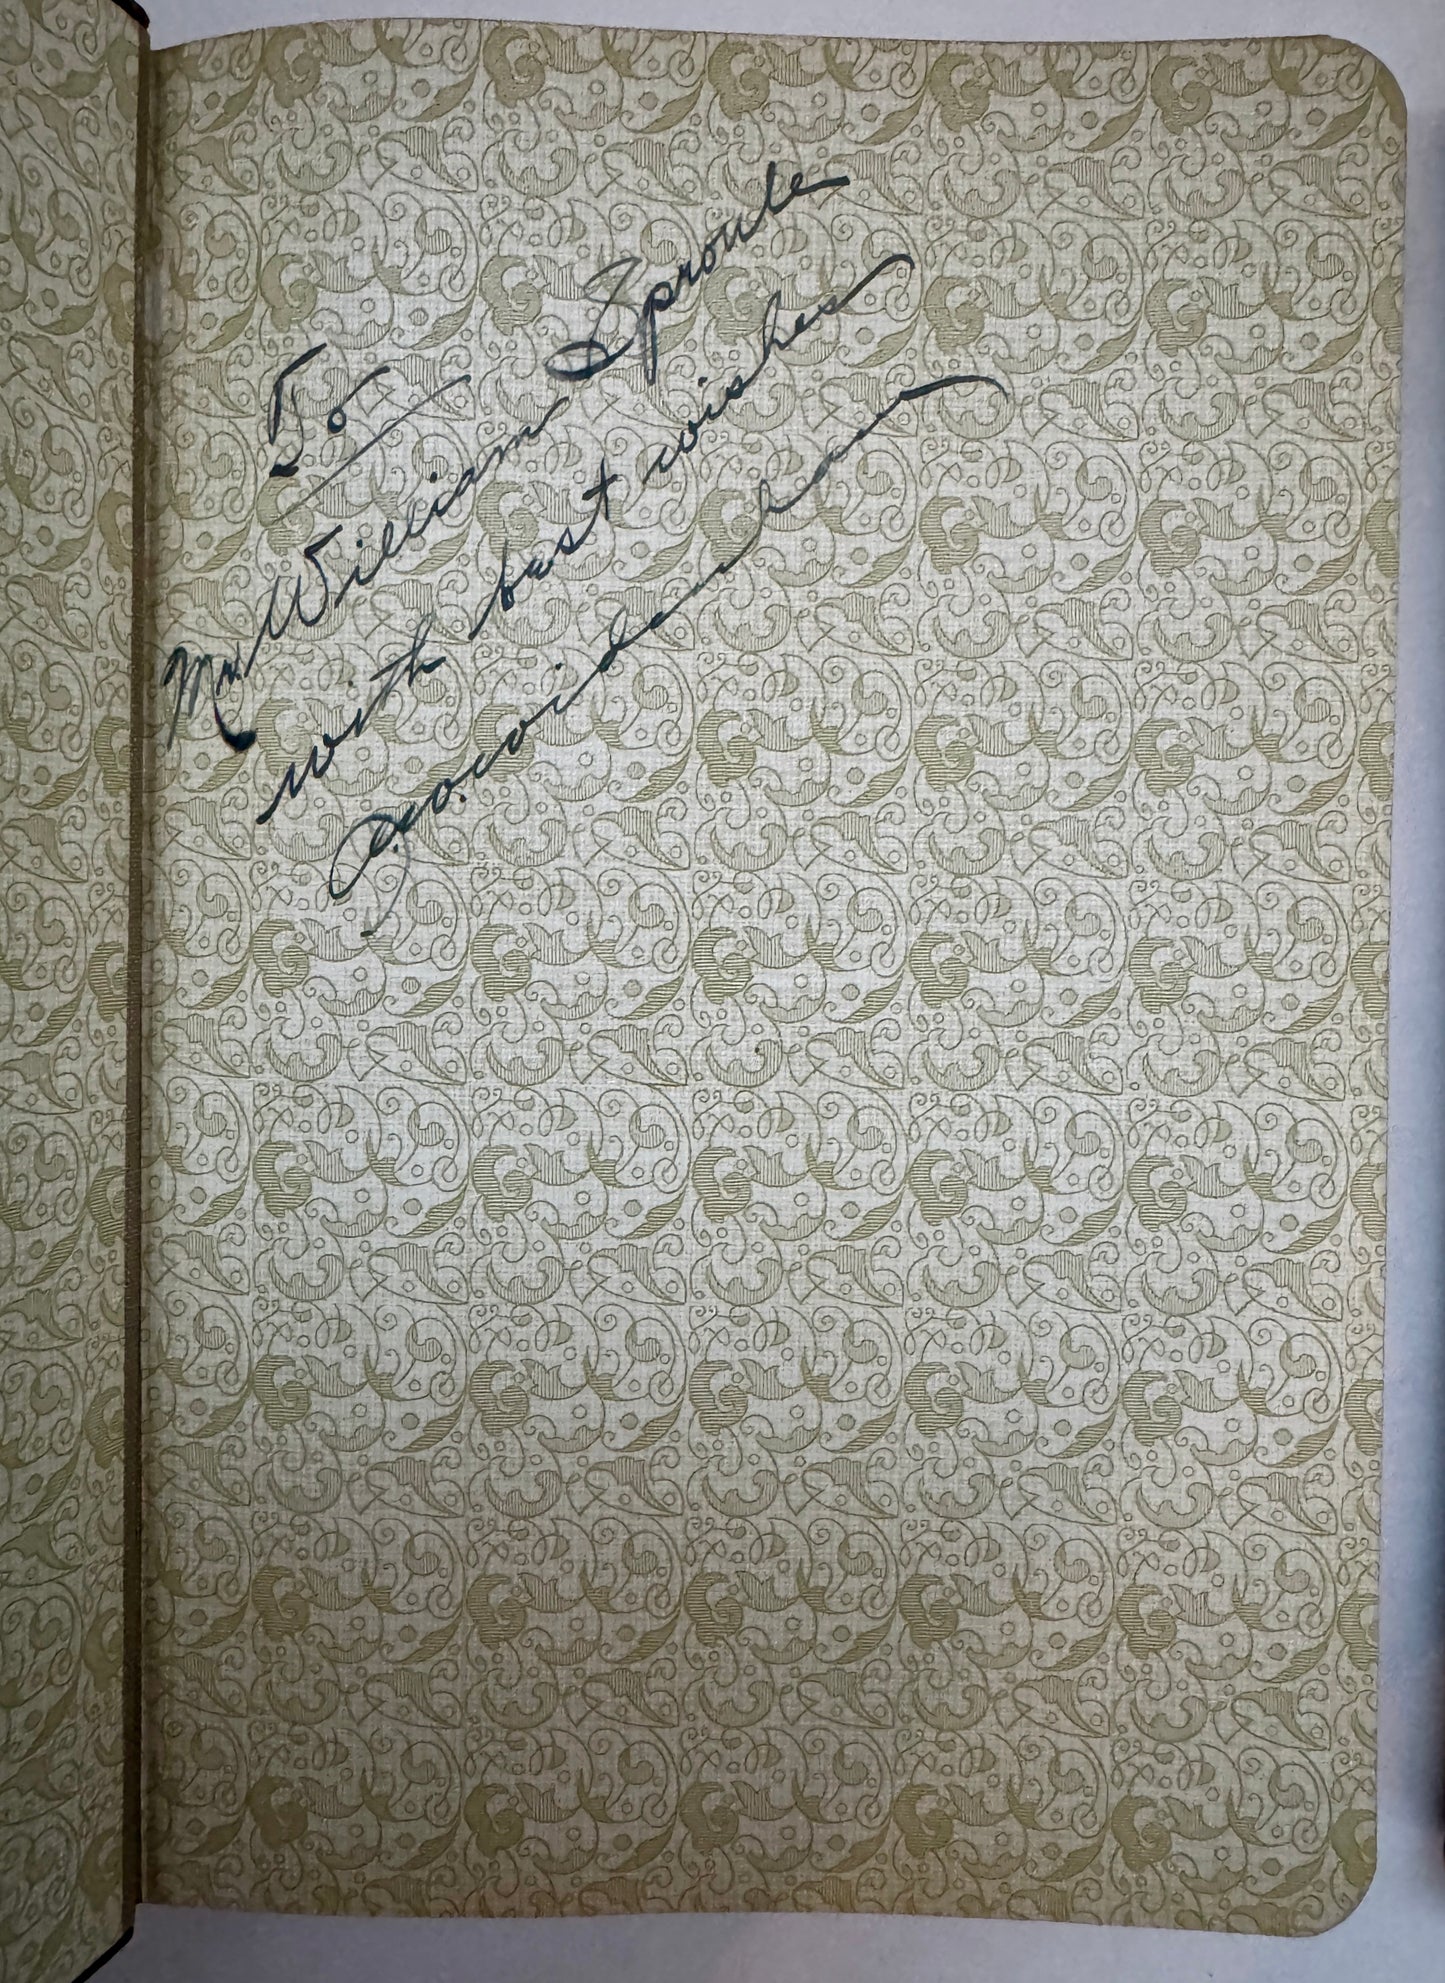 To
Mr. William Sproule
with best wishes